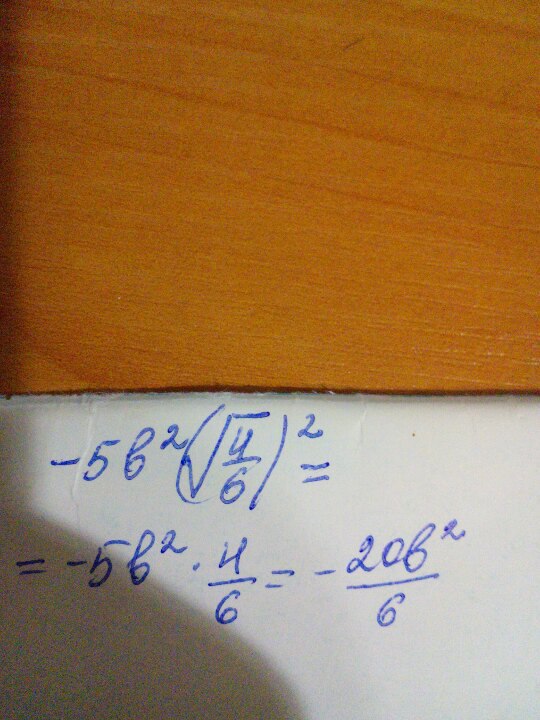 -5b²(√4/6)² =
= -5b² · 4/6 = - 20b²/6